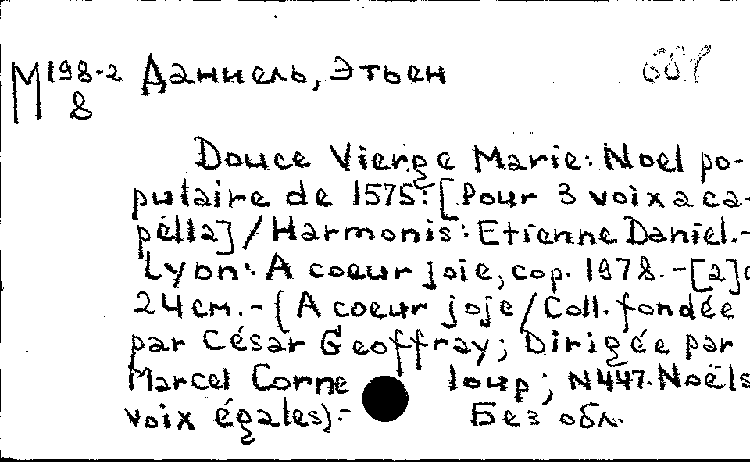 М198-2 Даниель, Этьен
8
Douce Vierge Marie: Noel po-
pulaire de 1575: [Pour 3 voix a ca-
pella] / Harmonis: Etienne Daniel.-
Lyon: A coeur joie, cop. 1978. - [2]с
24см. - (A coeur joje / Coll. fondée
par César Geoffray; Dirigée par
Marcel Corne loup; N447. Noëls
voix égales).- Без обл.